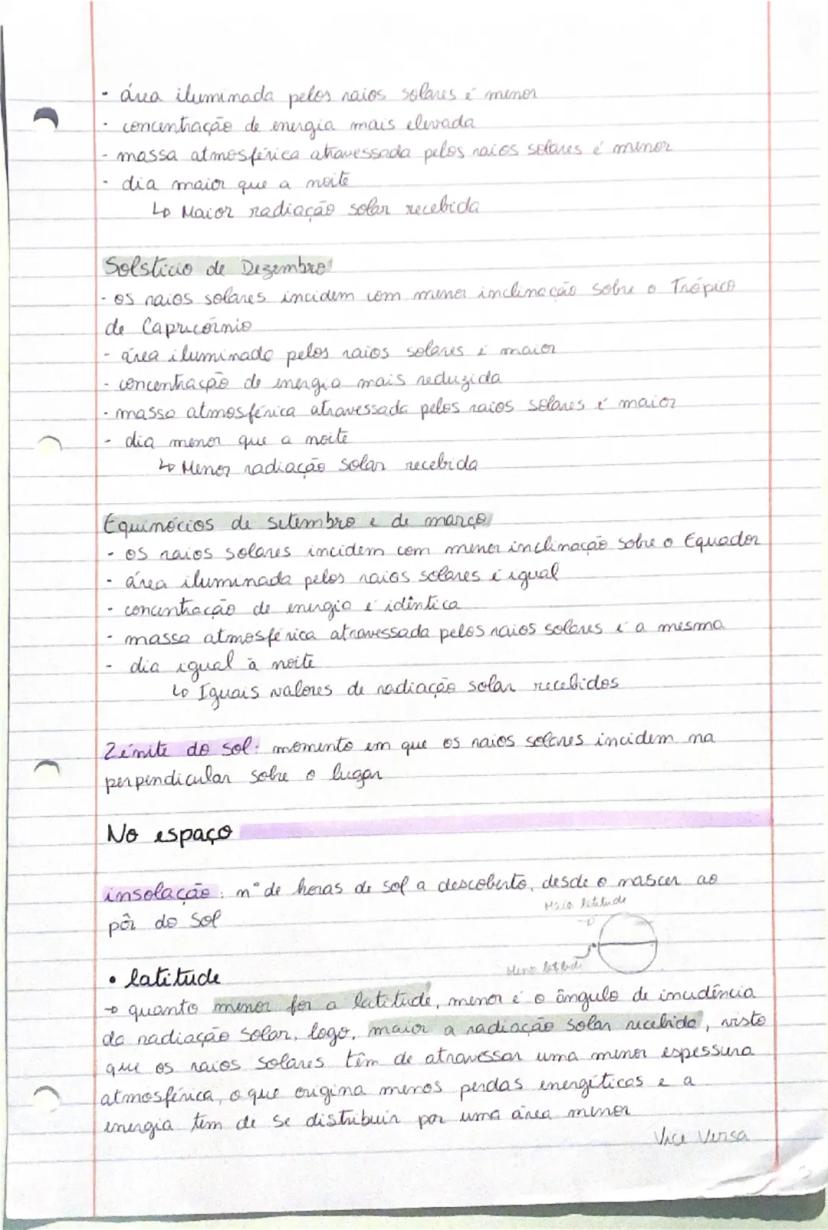 · área iluminada pelos raios solares é menor
· concentração de energia mais elevada
- massa atmosférica atravessada pelos raios solares é menor
· dia maior que a noite
↳ Maior radiação solar recebida
Solstício de Dezembro
· os raios solares incidem com menor inclinação sobre o Trópico
de Capricórnio
- área iluminado pelos raios solares é maior
· concentração de energia mais reduzida
· massa atmosférica atravessada pelos raios solares é maior
- dia menor que a noite
↳ Menor radiação solar recebida
Equinócios de setembro e de março
- os raios solares incidem com menor inclinação sobre o Equador
· área iluminada pelos raios solares é igual
- concentração de energia é idêntica
- massa atmosférica atravessada pelos raios solares é a mesma
- dia igual à noite
↳ Iguais valores de radiação solar recebidos
Zénite do sol: momento em que os raios solares incidem na
perpendicular sobre o lugar
No espaço
insolação: nº de horas de sol a descoberto, desde o nascer ao
pôr do sol
Maio latitude
Meno latitude
• latitude
→ quanto menor for a latitude, menor é o ângulo de incidência
da radiação solar, logo, maior a radiação solar recebida, visto
que os raios solares têm de atravessar uma menor espessura
atmosférica, o que origina menos perdas energéticas e a
energia tem de se distribuir por uma área menor
Vice Versa